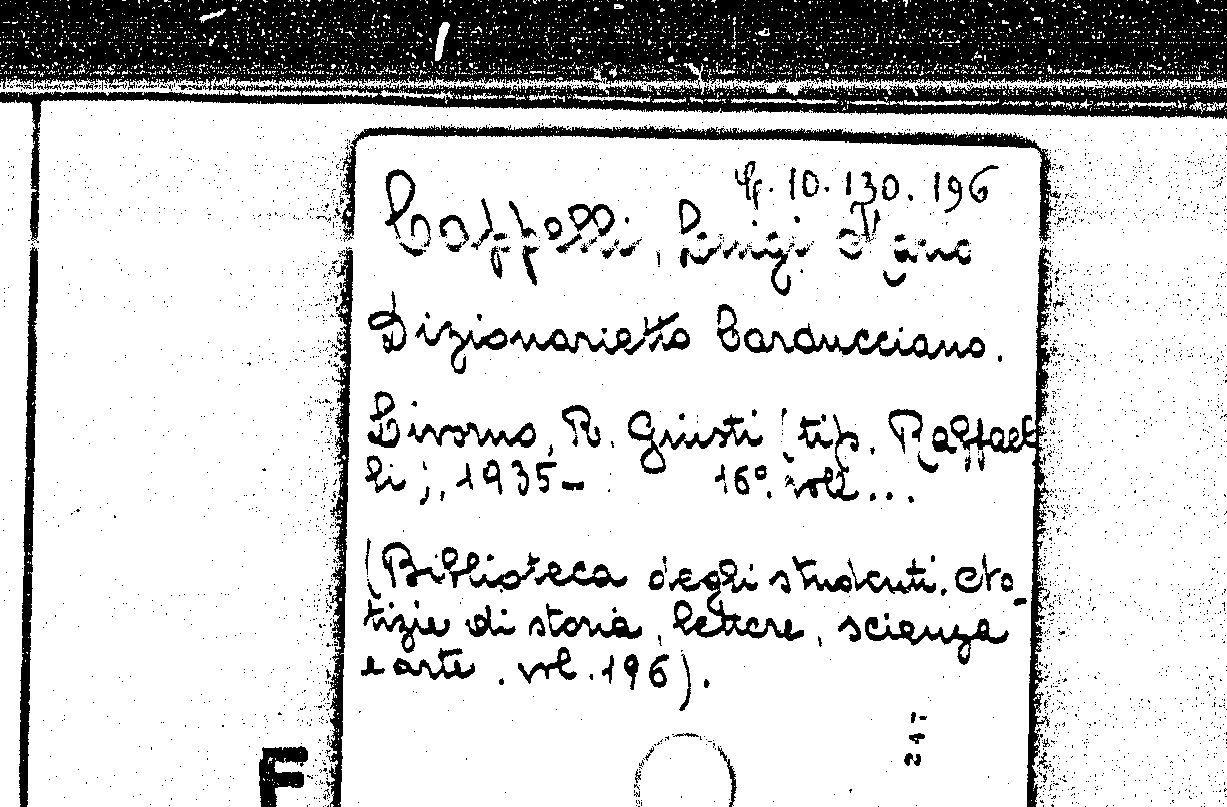 4. 10. 130. 196
Cappelli, Luigi M.
Dizionarietto Carducciano.
Livorno, R. Giusti (tip. Raffael
li), 1935– 16°. voll...
(Biblioteca degli studenti. No-
tizie di storia, lettere, scienza
e arte. vol. 196).
247
F